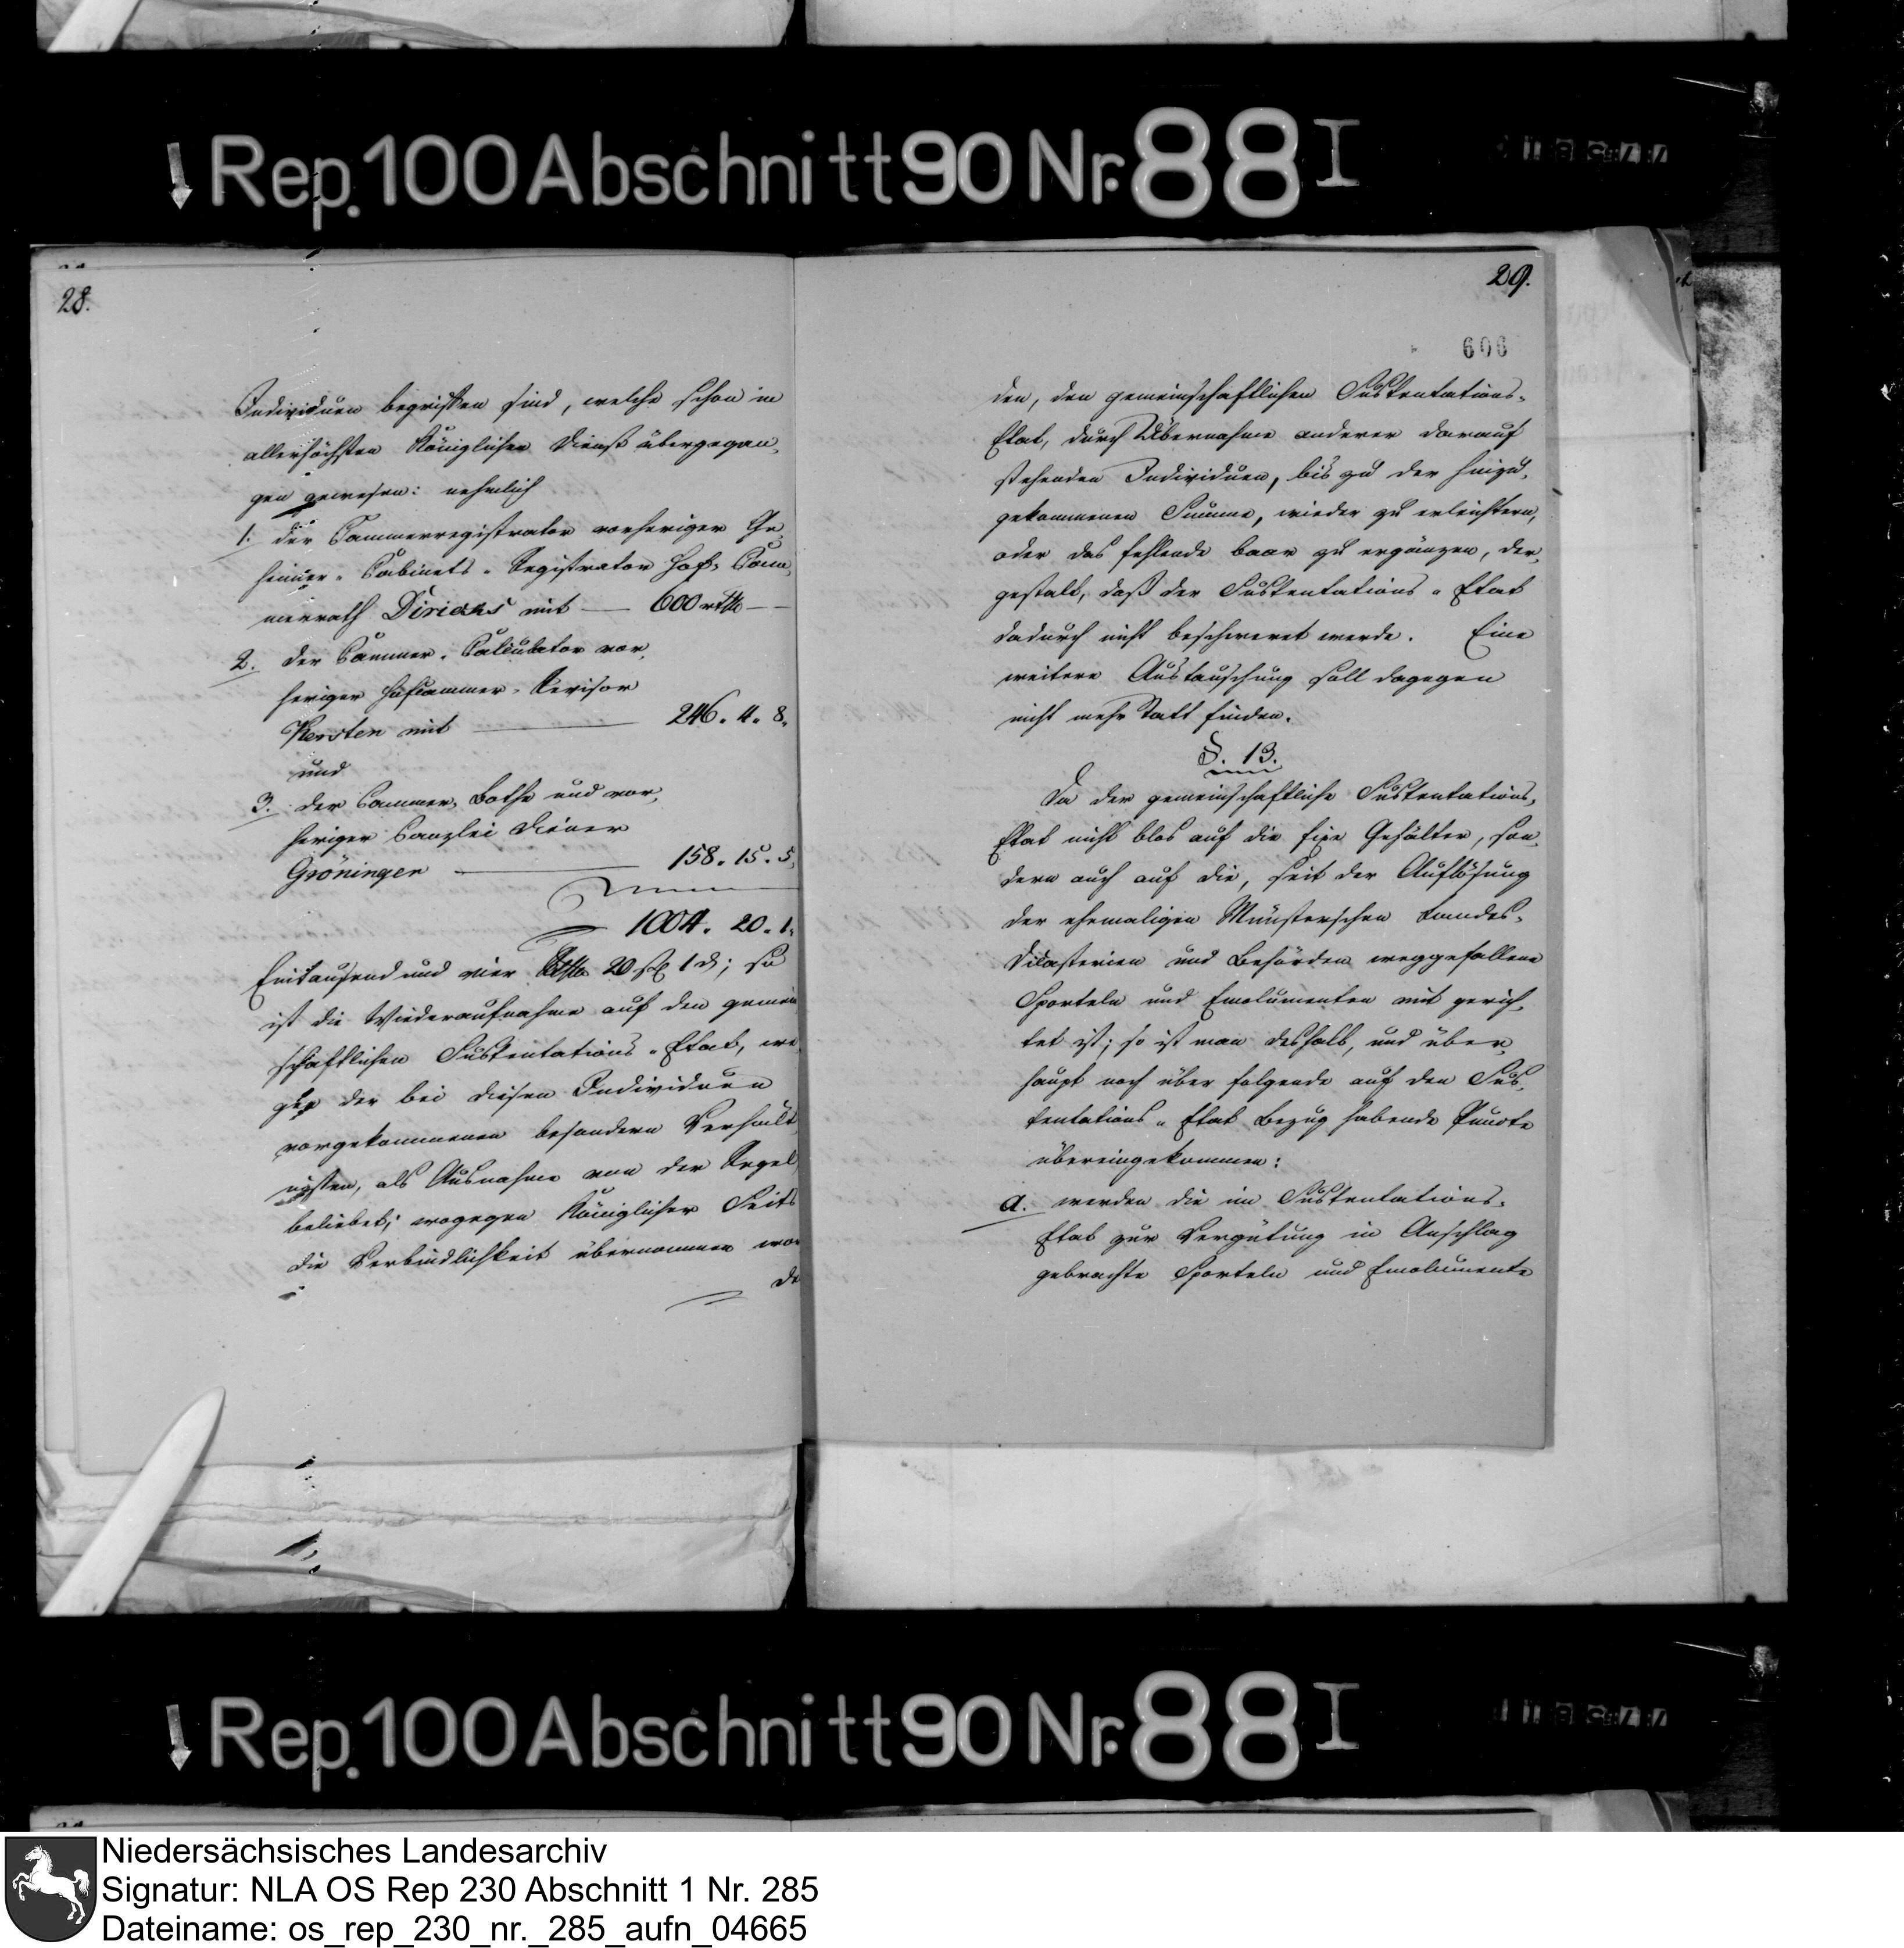 Rep. 100 Abschnitt 90 Nr. 88 I
28.
Individuen begriffen sind, welche schon in
allerhöchsten Königlichen Dienst übergegan¬
gen gewesen: nehmlich
1. der Cammerregistrator vorheriger Ge¬
heimer-Cabinets-Registrator Hof-Cam¬
merrath Diricks mit — 600 rthlr —
2. der Cammer-Calculator vor¬
heriger Hofkammer-Revisor
Kersten mit — 246. 4. 8.
und
3. der Cammer-Bothe und vor¬
heriger Canzlei Diener
Gröningen — 158. 15. 5.
1004. 20. 1.
Eintausend und vier Rthlr 20 ß 1 d; so
ist die Wiederaufnahme auf den gemein
schaftlichen Sustentations-Etat, we
gen der bei diesen Individuen
vorgekommenen besondern Verhält
nissen, als Ausnahme von der Regel
beliebet; wogegen Königlicher Seits
die Verbindlichkeit übernommen wor
de
29.
606
den, den gemeinschaftlichen Sustentations-
Etat, durch Übernahme anderer darauf
stehenden Individuen, bis zu der hinzu¬
gekommenen Summe, wieder zu erleichtern,
oder das fehlende baar zu ergänzen, der¬
gestalt, daß der Sustentations-Etat
dadurch nicht beschweret werde. Eine
weitere Austauschung soll dagegen
nicht mehr statt finden.
§. 13.
Da der gemeinschaftliche Sustentations-
Etat nicht blos auf die fixe Gehälter, son¬
dern auch auf die, seit der Auflösung
der ehemaligen Münsterschen Landes-
Dicasterien und Behörden weggefallene
Sporteln und Emolumenten mit gerich¬
tet ist; so ist man deshalb, und über¬
haupt noch über folgende auf den Sus¬
tentations-Etat Bezug habende Puncte
übereingekommen:
a. werden die im Sustentations-
Etat zur Vergütung in Anschlag
gebrachte Sporteln und Emolumente
Rep. 100 Abschnitt 90 Nr. 88 I
Niedersächsisches Landesarchiv
Signatur: NLA OS Rep 230 Abschnitt 1 Nr. 285
Dateiname: os_rep_230_nr._285_aufn_04665